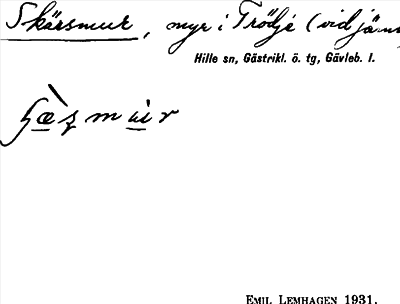 Skärsmur, myr i Trödje (vid järn
Hille sn, Gästrikl. ö. tg, Gävleb. l.
EMIL LEMHAGEN 1931.